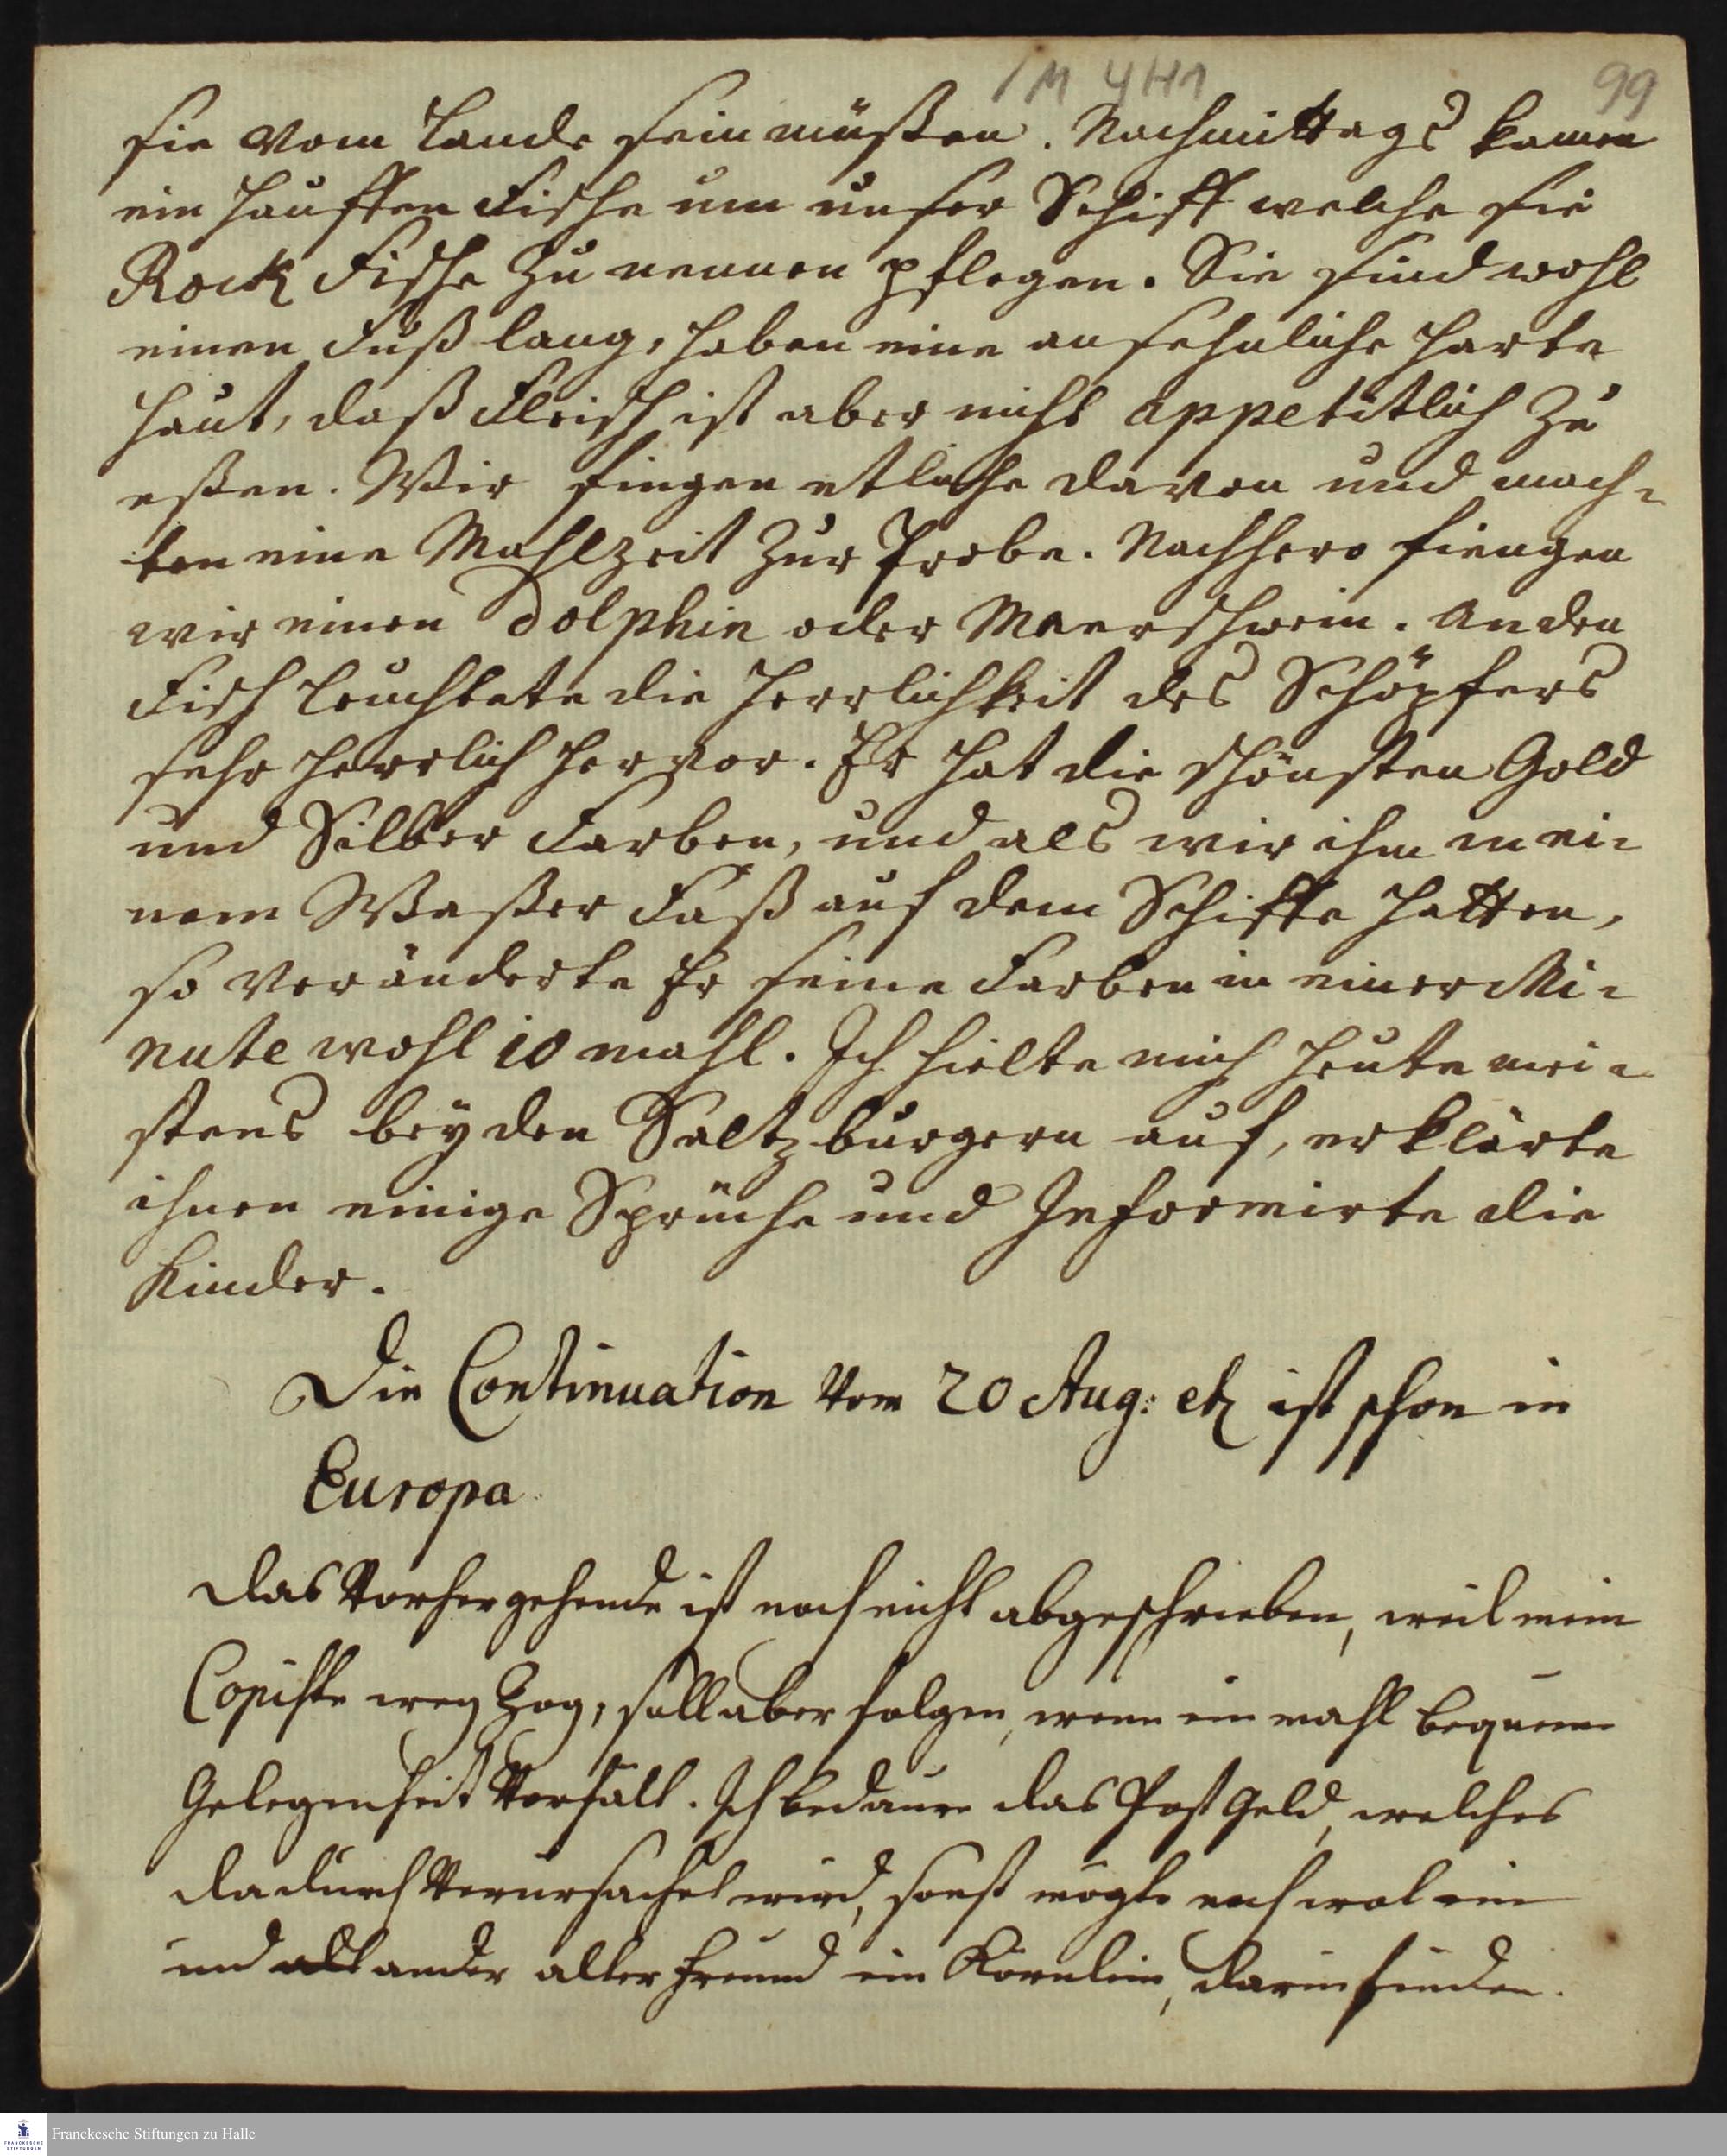 1 M 4 H 1
99
sie vom Lande sein müßen. Nachmittags kamen
ein Hauffen Fische um unser Schiff welche sie
Rock Fische zu nennen pflegen. Sie sind wohl
einen Fuß lang, haben eine ansehnliche harte
Haut, daß Fleisch ist aber nicht appetitlich zu
eßen. Wir fingen etliche davon und mach-
ten eine Mahlzeit zur Probe. Nachhero fiengen
wir einen Dolphin oder Meerschwein. An den
Fisch leuchtete die Herrlichkeit des Schöpfers
sehr herrlich hervor. Er hat die schönsten Gold
und Silber Farben, und als wir ihn in ei-
nem Waßer Faß auf dem Schiffe hatten,
so veränderte Er seine Farben in einer Mi-
nute wohl 10 mahl. Ich hielte mich heute mei-
stens bey den Saltzburgern auf, erklärte
ihnen einige Sprüche und Informirte die
Kinder.
Die Continuation vom 20 Aug: etc ist schon in
Europa
das Vorhergehende ist noch nicht abgeschrieben, weil mein
Copiste weg zog, soll aber folgen, wenn ein mahl bequeme
Gelegenheit Vorfält. Ich bedaure das Post Geld, welches
dadurch Verursachet wird, sonst mögte noch wol ein
und ander alter Freund ein Körnlein, darin finden.
FRANCKESCHE
STIFTUNGEN
Franckesche Stiftungen zu Halle